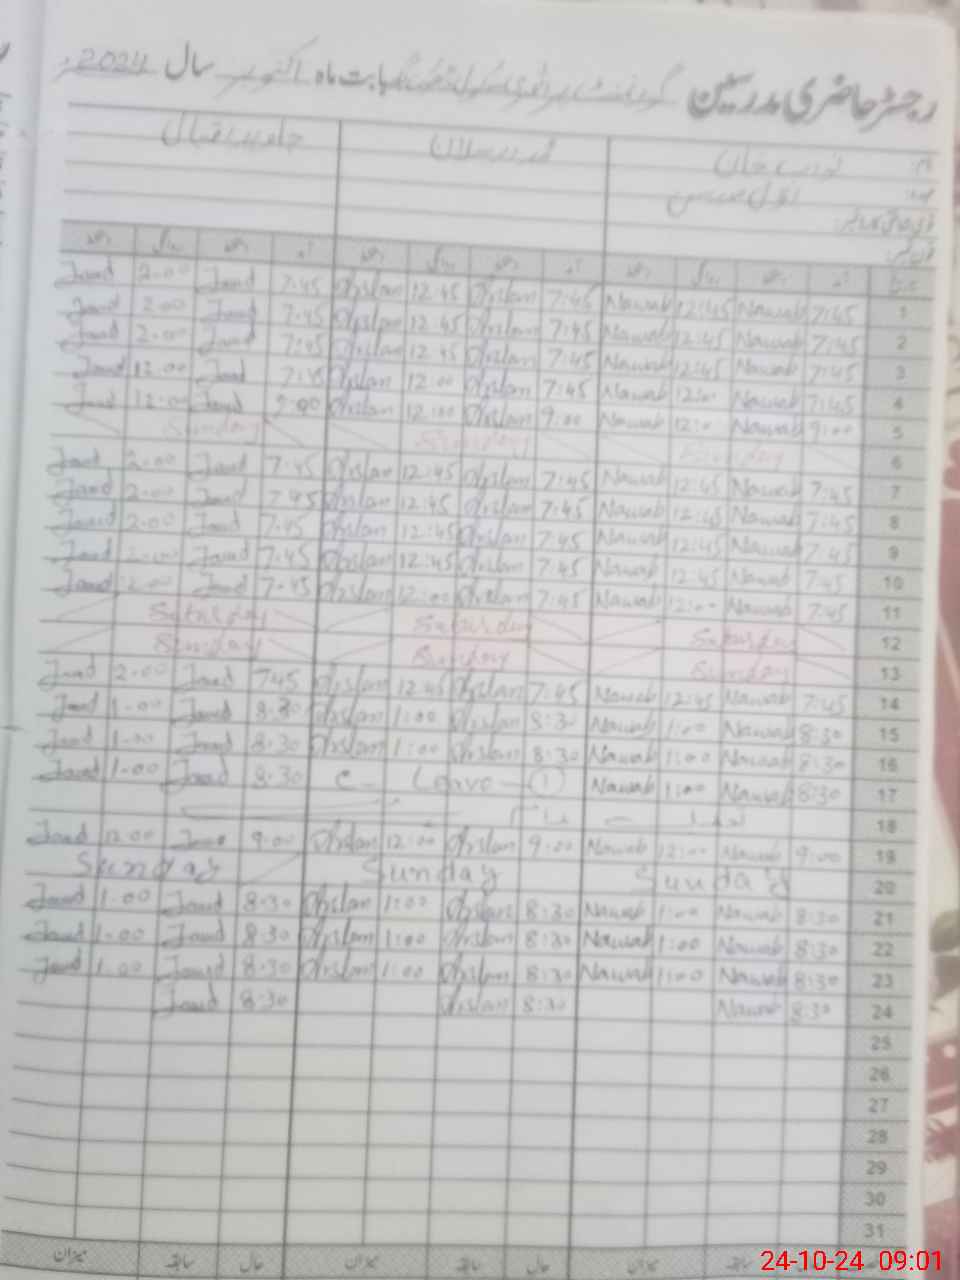 رجسٹر حاضری مدرسین گورنمنٹ پرائمری سکول بابت ماہ اکتوبر سال 2024ء
نام: نواب خان ارسلان جاوید اقبال
1 7:45 Nawab 12:45 Nawab 7:45 Arslan 12:45 Arslan 7:45 Javed 2:00 Javed
2 7:45 Nawab 12:45 Nawab 7:45 Arslan 12:45 Arslan 7:45 Javed 2:00 Javed
3 7:45 Nawab 12:45 Nawab 7:45 Arslan 12:45 Arslan 7:45 Javed 2:00 Javed
4 7:45 Nawab 12:00 Nawab 7:45 Arslan 12:00 Arslan 7:45 Javed 12:00 Javed
5 9:00 Nawab 12:00 Nawab 9:00 Arslan 12:00 Arslan 9:00 Javed 12:00 Javed
6 Sunday Sunday Sunday
7 7:45 Nawab 12:45 Nawab 7:45 Arslan 12:45 Arslan 7:45 Javed 2:00 Javed
8 7:45 Nawab 12:45 Nawab 7:45 Arslan 12:45 Arslan 7:45 Javed 2:00 Javed
9 7:45 Nawab 12:45 Nawab 7:45 Arslan 12:45 Arslan 7:45 Javed 2:00 Javed
10 7:45 Nawab 12:45 Nawab 7:45 Arslan 12:45 Arslan 7:45 Javed 2:00 Javed
11 7:45 Nawab 12:00 Nawab 7:45 Arslan 12:00 Arslan 7:45 Javed 2:00 Javed
12 Saturday Saturday Saturday
13 Sunday Sunday Sunday
14 7:45 Nawab 12:45 Nawab 7:45 Arslan 12:45 Arslan 7:45 Javed 2:00 Javed
15 8:30 Nawab 1:00 Nawab 8:30 Arslan 1:00 Arslan 8:30 Javed 1:00 Javed
16 8:30 Nawab 1:00 Nawab 8:30 Arslan 1:00 Arslan 8:30 Javed 1:00 Javed
17 8:30 Nawab 1:00 Nawab C- Leave - (1) 8:30 Javed 1:00 Javed
18
19 9:00 Nawab 12:00 Nawab 9:00 Arslan 12:00 Arslan 9:00 Javed 12:00 Javed
20 Sunday Sunday Sunday
21 8:30 Nawab 1:00 Nawab 8:30 Arslan 1:00 Arslan 8:30 Javed 1:00 Javed
22 8:30 Nawab 1:00 Nawab 8:30 Arslan 1:00 Arslan 8:30 Javed 1:00 Javed
23 8:30 Nawab 1:00 Nawab 8:30 Arslan 1:00 Arslan 8:30 Javed 1:00 Javed
24 8:30 Nawab 8:30 Arslan 8:30 Javed
25
26
27
28
29
30
31
سابقہ میزان حال سابقہ میزان حال سابقہ میزان
24-10-24 09:01